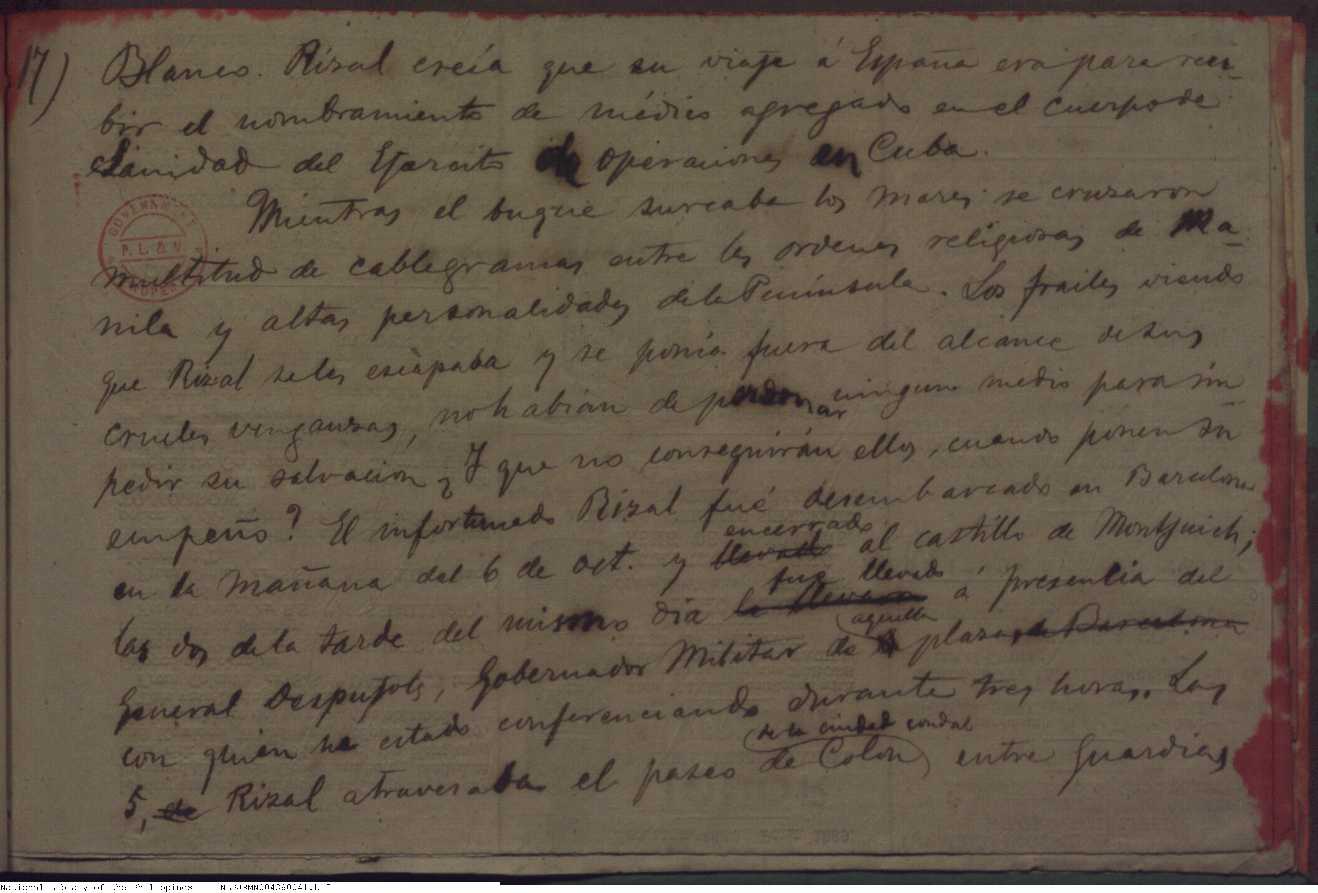 17)
Blanco. Rizal creía que su viaje á España era para reci-
bir el nombramiento de médico agregado en el cuerpo de
Sanidad del Ejército de operaciones en Cuba.
Mientras el buque surcaba los mares se cruzaron
multitud de cablegramas entre las ordenes religiosas de Ma-
nila y altas personalidades de la Peninsula. Los frailes viendo
que Rizal se les escapaba y se ponía fuera del alcance de sus
crueles venganzas, no habian de perdonar ninguno medio para im
pedir su salvacion ¿Y que no conseguirán ellos, cuando ponen su
empeño? El infortunado Rizal fué desembarcado en Barcelona
encerrado
en la mañana del 6 de oct. y llevado al castillo de Montjuich;
fue llevado
las dos de la tarde del mismo dia le llevaron á presencia del
aquella
General Despujols, Gobernador Militar de plaza, de Barcelona
con quien ha estado conferenciando durante tres horas. Las
de la ciudad condal
5, de Rizal atravesaba el paseo de Colon, entre guardias
GOVERNMENT
P. L. & M.
PROPERTY
National Library of the Philippines